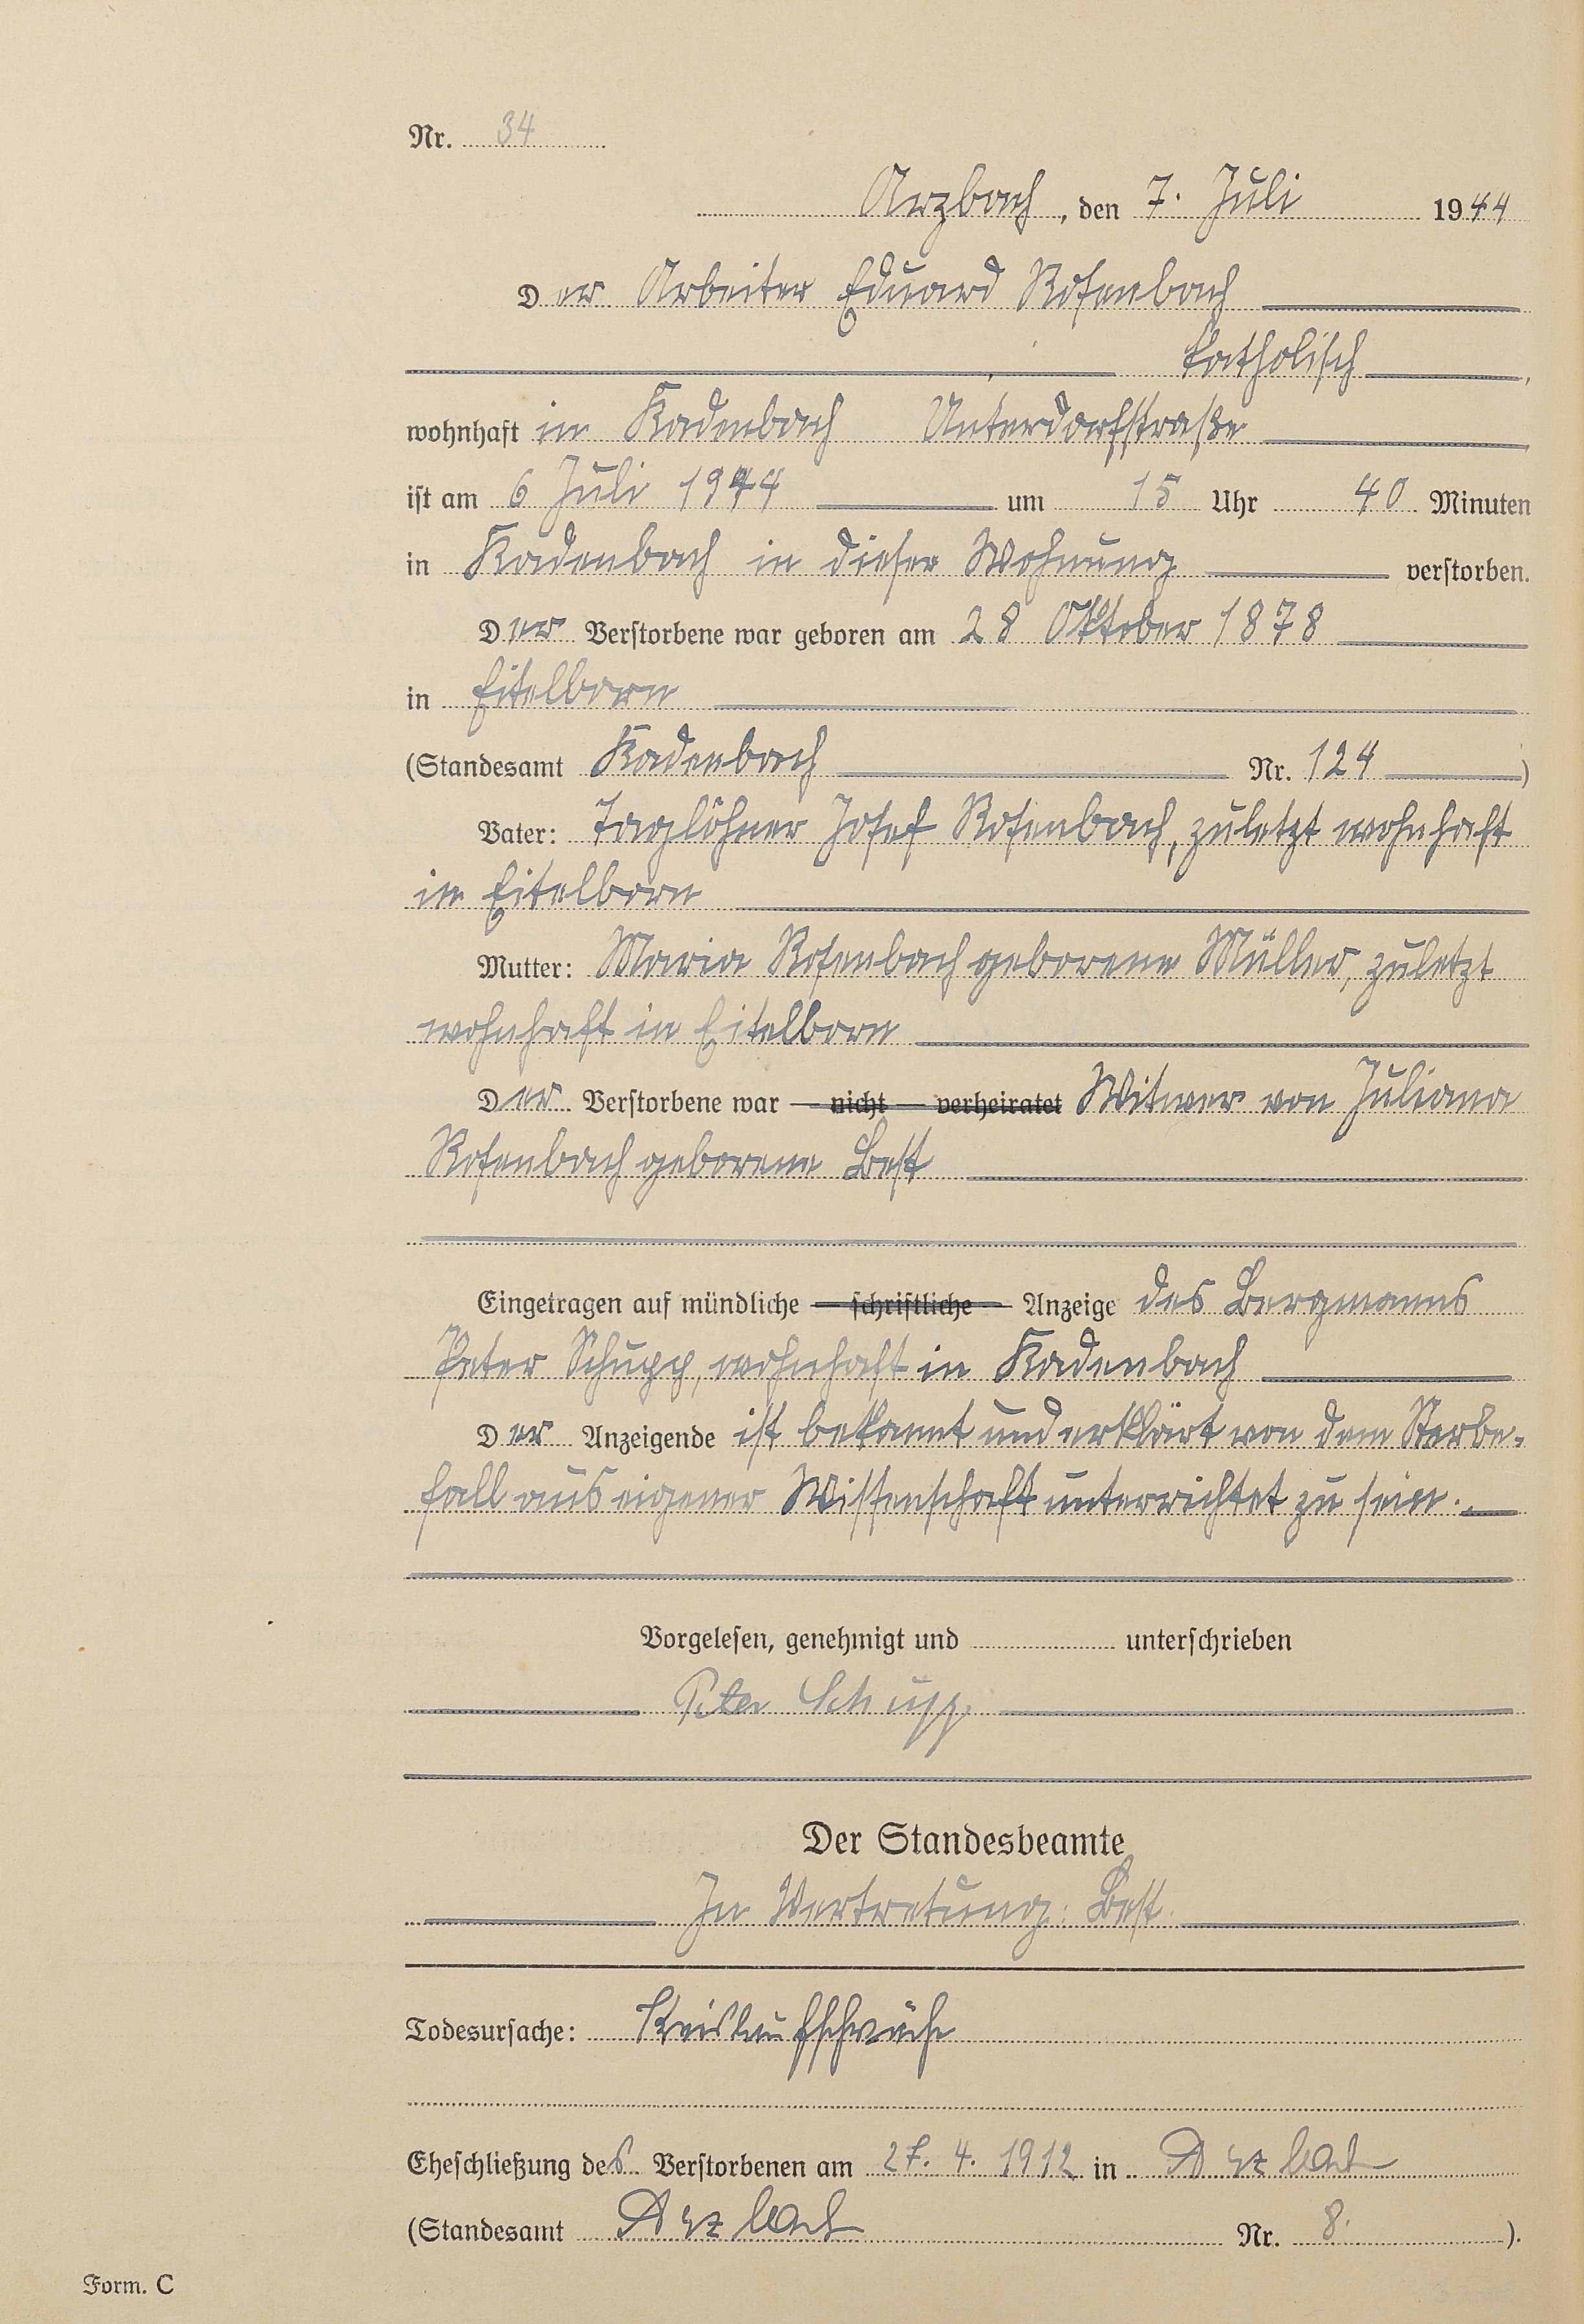 Nr. 34
Arzbach, den 7. Juli 1944
Der Arbeiter Eduard Rosenbach
katholisch,
wohnhaft in Kadenbach Unterdorfstraße
ist am 6 Juli 1944 um 15 Uhr 40 Minuten
in Kadenbach in dieser Wohnung verstorben.
Der Verstorbene war geboren am 28 Oktober 1878
in Eitelborn
(Standesamt Kadenbach Nr. 124)
Vater: Taglöhner Josef Rosenbach, zuletzt wohnhaft
in Eitelborn
Mutter: Maria Rosenbach geborene Müller, zuletzt
wohnhaft in Eitelborn
Der Verstorbene war — nicht — verheiratet Witwer von Juliana
Rosenbach geborene Best
Eingetragen auf mündliche — schriftliche — Anzeige des Bergmanns
Peter Schupp, wohnhaft in Kadenbach
Der Anzeigende ist bekannt und erklärt von dem Sterbe-
fall aus eigener Wissenschaft unterrichtet zu sein.
Vorgelesen, genehmigt und unterschrieben
Peter Schupp
Der Standesbeamte
In Vertretung: Best
Todesursache: Kreislaufschwäche
Eheschließung des Verstorbenen am 27. 4. 1912 in Arzbach
(Standesamt Arzbach Nr. 8.).
Form. C